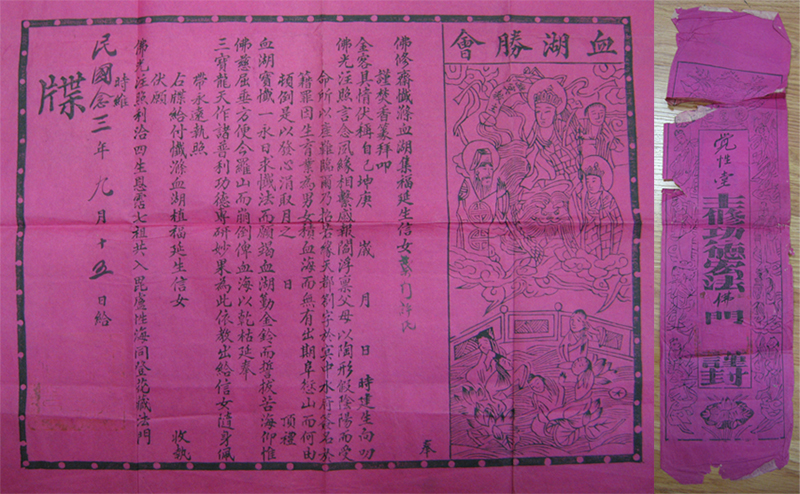 血湖勝會
奉
佛修齋懺滌血湖集福延生信女
謹焚香薰拜叩
金容具情伏稱自己坤庚 歲 月 日 時建生向叨
佛光注照言念夙緣相繫感報閻浮稟父母以陶形假陰陽而受
命所以
籍罪因生育業為男女積血海而無有出期阜愆山而何由
頓倒是以發心消取月之 日 頂禮
血湖寶懺一永日求懺法而願竭血湖勤金鈴而誓拔苦海仰惟
佛慈屈垂方便令羅山而崩倒俾血海以乾枯延奉
三寶龍天作諸普利功德專研妙果為此依教出給信女隨身佩
帶永遠執照
右牒給付懺滌血湖植福延生信女 收執
伏願
佛光注照利洽四生恩霑七祖共入毘盧性海同登花藏法門
時維
民國念三年九月十五日給
牒
性堂
主修功德宏法佛門 謹封